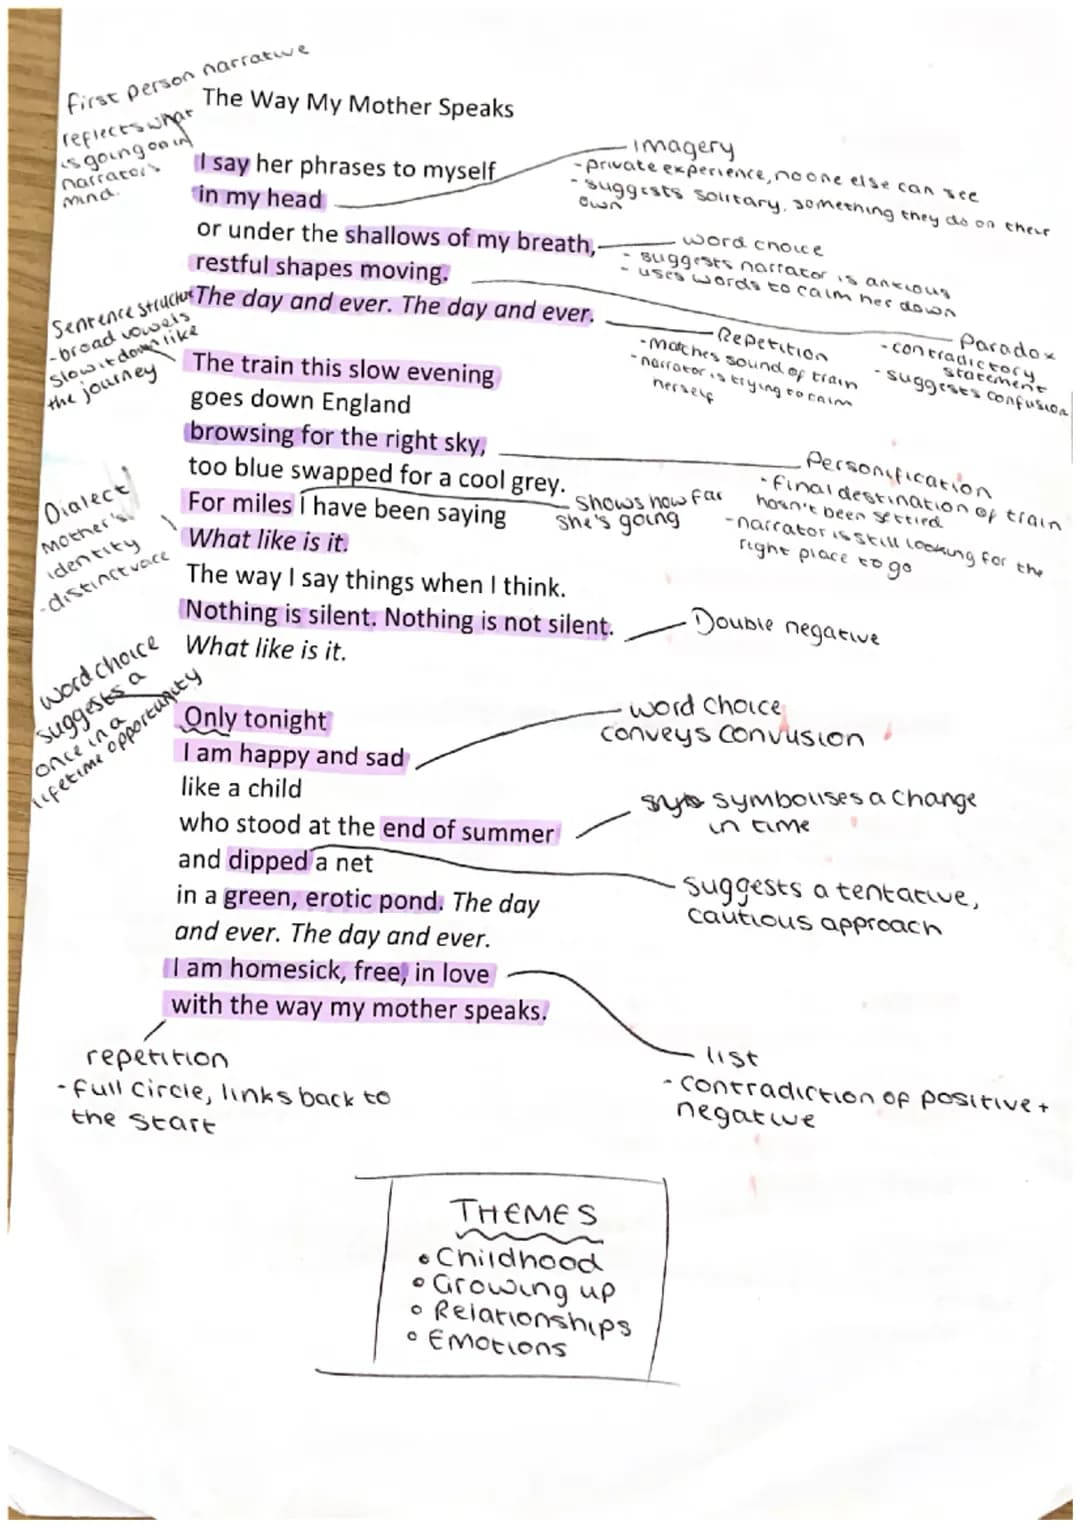 First person narrative
reflects what
is going on in
narrator's
mind.
The Way My Mother Speaks
I say her phrases to myself
in my head
or under the shallows of my breath,
restful shapes moving.
The day and ever. The day and ever.
imagery
- private experience, no one else can see
- suggests solitary, something they do on their
own
word choice
- suggests narrator is anxious
- uses words to calm her down
Paradox
- contradictory
statement
- suggests confusion
Repetition
- matches sound of train
- narrator is trying to calm
herself
Sentence structure
- broad vowels
slow it down like
the journey
The train this slow evening
goes down England
browsing for the right sky,
too blue swapped for a cool grey.
For miles I have been saying
What like is it.
The way I say things when I think.
Nothing is silent. Nothing is not silent.
What like is it.
Personification
- final destination of train
hasn't been settled
- narrator is still looking for the
right place to go
shows how far
she's going
Dialect
Mother's
identity
- distinct voce
Double negative
word choice
suggests a
once in a
lifetime opportunity
Only tonight
I am happy and sad
like a child
who stood at the end of summer
and dipped a net
in a green, erotic pond. The day
and ever. The day and ever.
I am homesick, free, in love
with the way my mother speaks.
word choice
conveys convusion
symbolises a change
in time
suggests a tentative,
cautious approach
repetition
- full circle, links back to
the start
list
- contradiction of positive +
negative
THEMES
• Childhood
• Growing up
• Relationships
• Emotions